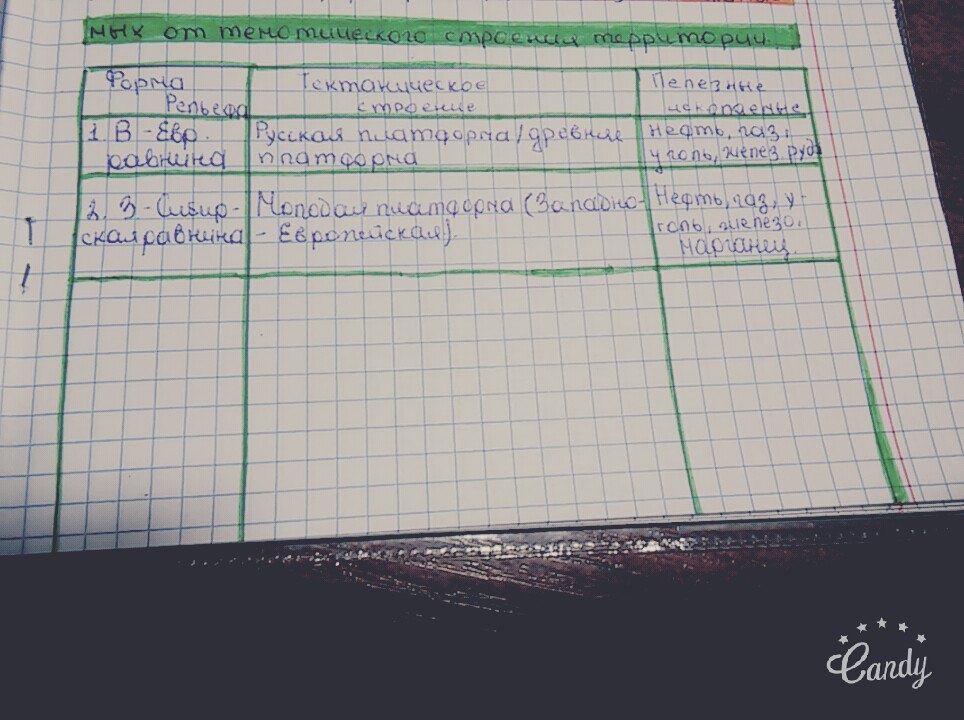 мых от тектонического строения территории
Форма
Рельефа
Тектаническое
строение
Полезные
ископаемые
1. В - Евр.
равнина
Русская платформа/древние
платформа
нефть, газ,
уголь, желез. руда
2. З - Сибир-
ская равнина
Молодая платформа (Западно-
- Европейская).
Нефть, газ, у-
голь, железо,
марганец
Candy